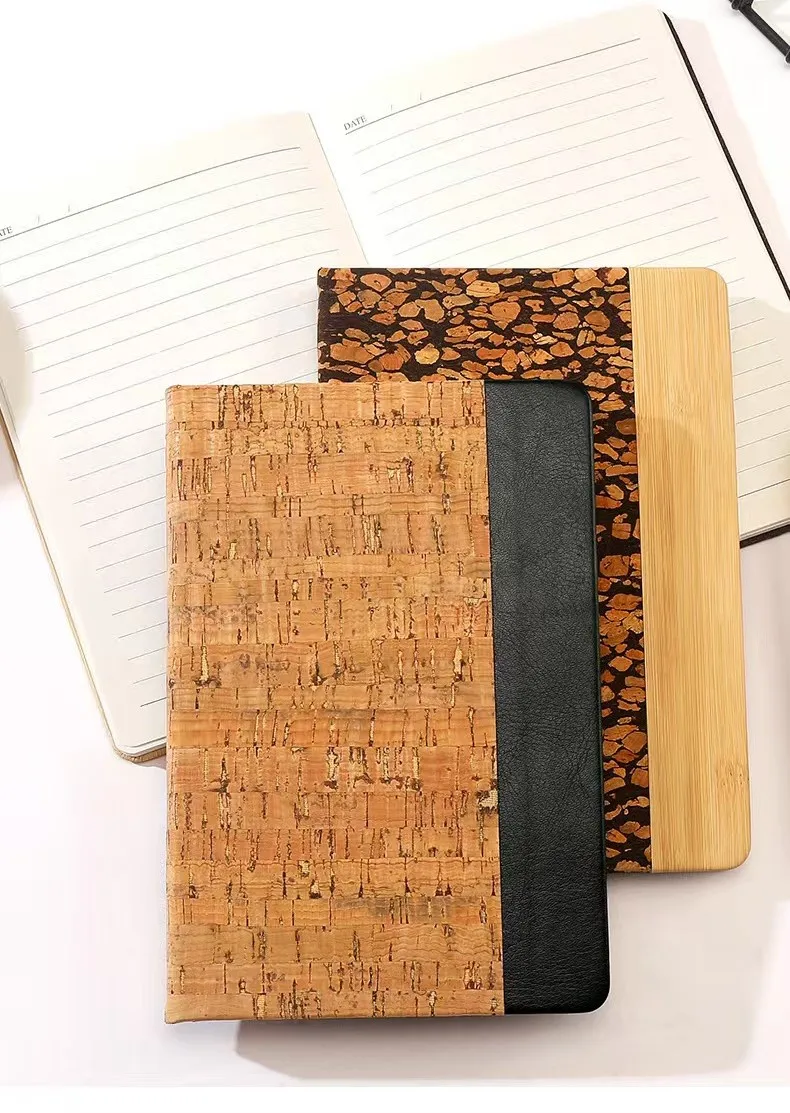 DATE / /
DATE / /